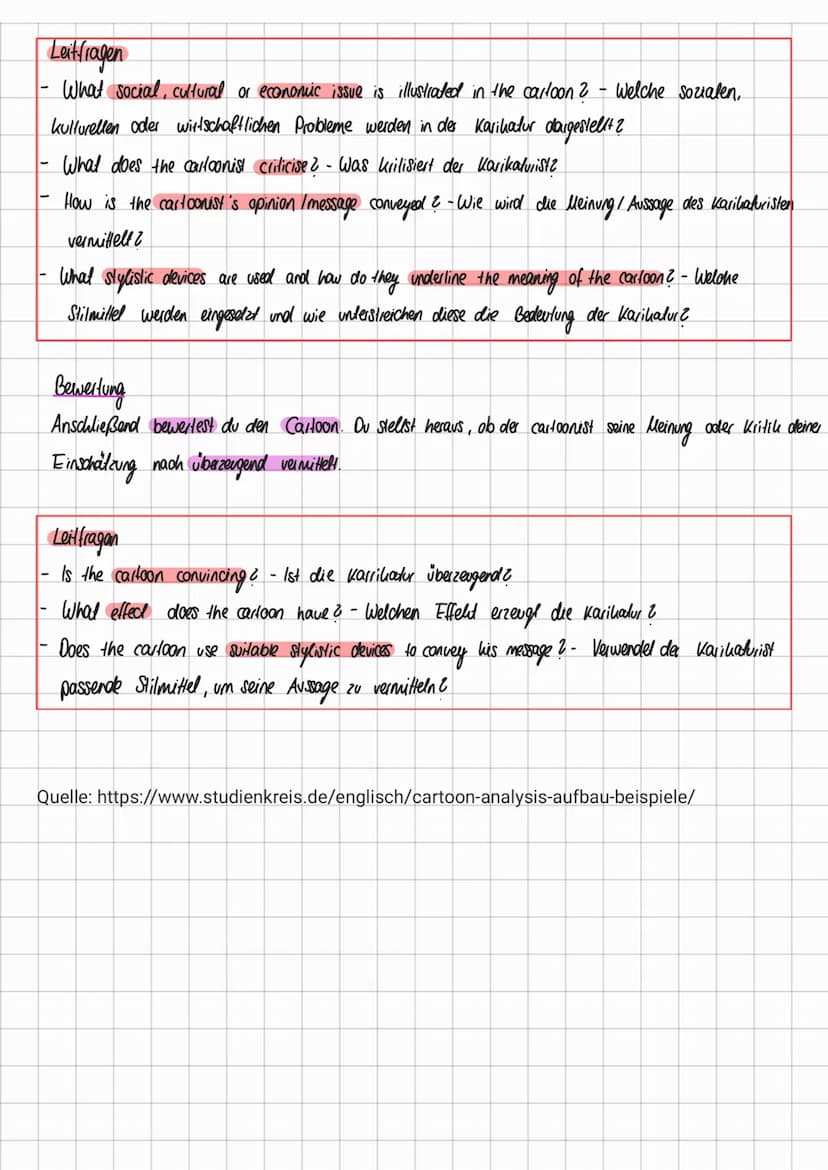 Leitfragen
- What social, cultural or economic issue is illustrated in the cartoon? - Welche sozialen,
kulturellen oder wirtschaftlichen Probleme werden in der Karikatur dargestellt?
- What does the cartoonist criticise? - Was kritisiert der Karikaturist?
- How is the cartoonist's opinion / message conveyed? - Wie wird die Meinung / Aussage des Karikaturisten
vermittelt?
- What stylistic devices are used and how do they underline the meaning of the cartoon? - Welche
Stilmittel werden eingesetzt und wie unterstreichen diese die Bedeutung der Karikatur?
Bewertung
Anschließend bewertest du den Cartoon. Du stellst heraus, ob der cartoonist seine Meinung oder Kritik deiner
Einschätzung nach überzeugend vermittelt.
Leitfragen
- Is the cartoon convincing? - Ist die Karrikatur überzeugend?
- What effect does the cartoon have? - Welchen Effekt erzeugt die Karikatur?
- Does the cartoon use suitable stylistic devices to convey his message? - Verwendet der Karikaturist
passende Stilmittel, um seine Aussage zu vermitteln?
Quelle: https://www.studienkreis.de/englisch/cartoon-analysis-aufbau-beispiele/